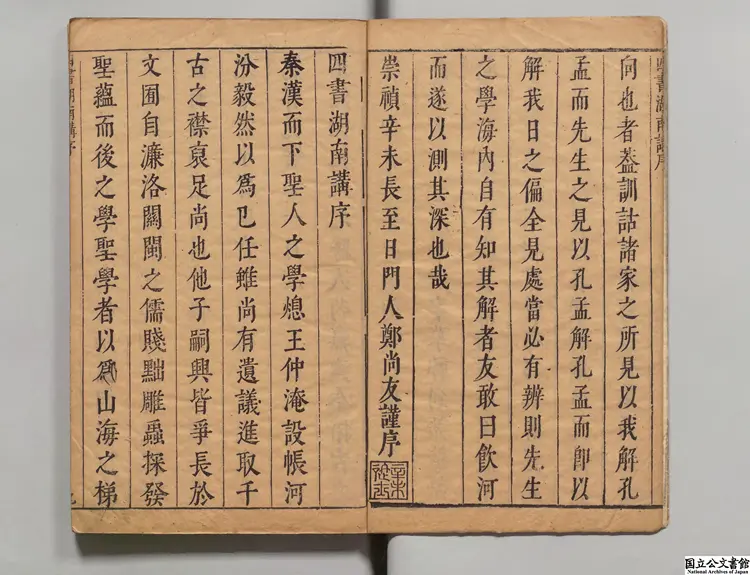 四書湖南講序
向也者葢訓詁諸家之所見以我解孔
孟而先生之見以孔孟解孔孟而即以
解我日之偏全見處當必有辨則先生
之學海內自有知其解者友敢曰飲河
而遂以測其深也哉
崇禎辛未長至日門人鄭尚友謹序
四書湖南講序
秦漢而下聖人之學熄王仲淹設帳河
汾毅然以爲已任雖尚有遺議進取千
古之襟裒足尚也他子嗣興皆爭長於
文囿自濂洛關閩之儒賤黜雕蟲採發
聖蘊而後之學聖學者以爲山海之梯
四書湖南講序
國立公文書館
National Archives of Japan